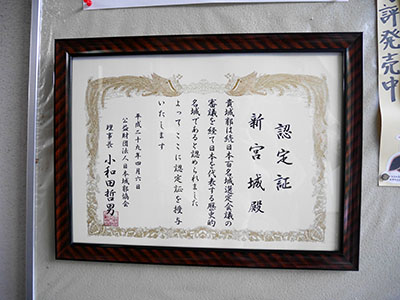 認定証
新宮城殿
貴城郭は続日本百名城選定会議の
審議を経て日本を代表する歴史的
名城であると認められました
よってここに認定証を授与
いたします
平成二十九年四月六日
公益財団法人日本城郭協会
理事長 小和田哲男
評発売中